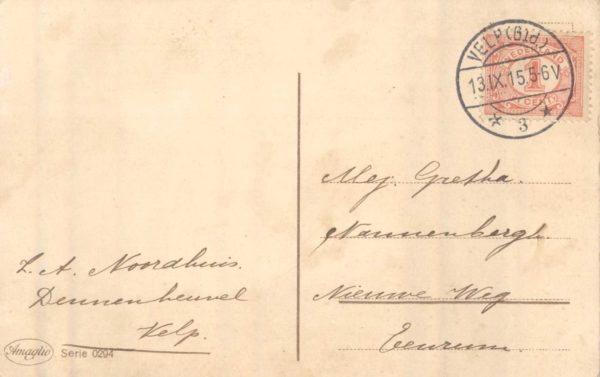 VELP (Gld)
13.IX.15.5-6V
* 3 *
NEDERLAND
1
CENT
Mej. Gretha.
Nannenbergh.
Nieuwe Weg
Eenrum.
L. A. Noordhuis.
Dennenheuvel
Velp.
Amaglio Serie 0294